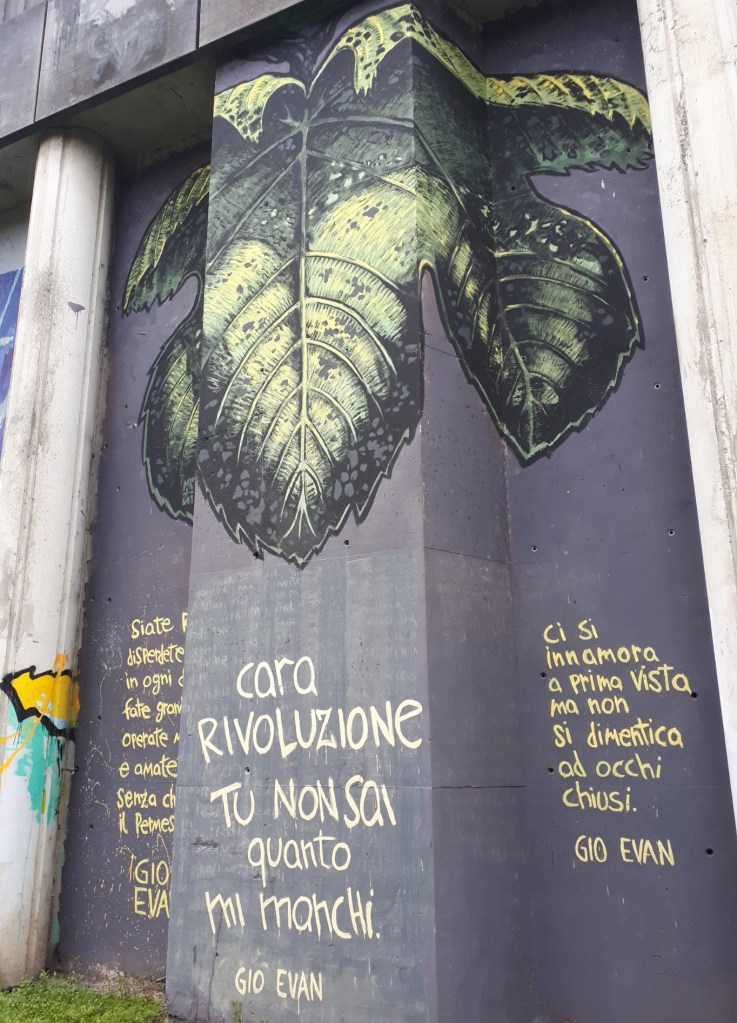 Siate
disperdete
in ogni
fate
operate
e amate
senza
il
GIO
cara
RIVOLUZIONE
TU NON SAI
quanto
mi manchi.
GIO EVAN
ci si
innamora
a prima vista
ma non
si dimentica
ad occhi
chiusi.
GIO EVAN